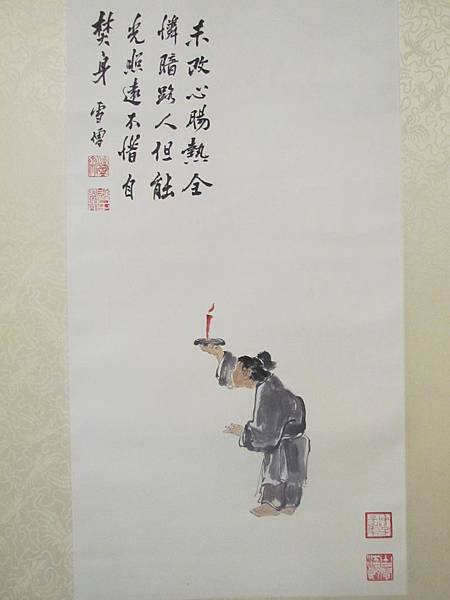 未改心腸熱全
憐暗路人但能
光照遠不惜自
焚身 雪僧